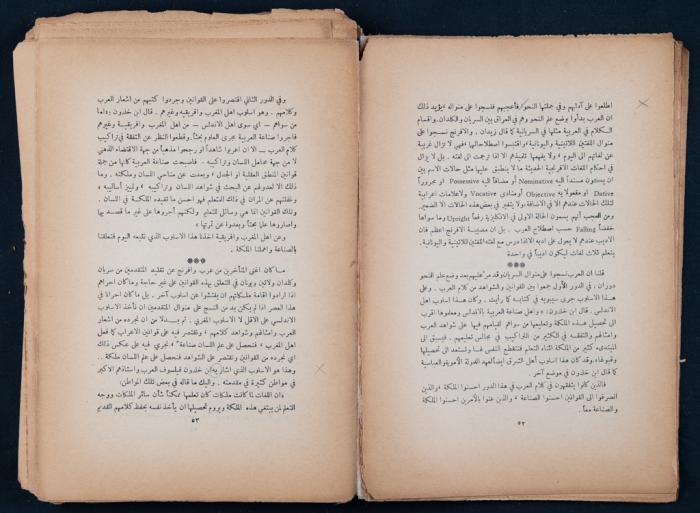 اطلعوا على آدابهم وفي جملتها النحو فأعجبهم فنسجوا على منواله ويؤيد ذلك
ان العرب بدأوا بوضع علم النحو وهم في العراق بين السريان والكلدان واقسام
الكلام في العربية مثلها في السريانية كما قال زيدان . والافرنج نسجوا على
منوال اللغتين اللاتينية واليونانية واقتبسوا اصطلاحاتها فهي لا تزال غريبة
عن لغاتهم الى اليوم ولا يفهمها تلميذهم الا اذا ترجمت الى لغته . بل لا يزال
في احكام اللغات الافرنجية الحديثة ما لا ينطبق عليها مثل حالات الاسم بين
ان يكون مسنداً اليه Nominative أو مضافاً اليه Possessive او مجروراً
Dative او مفعولا به Objective أو منادى Vocative ولا علامات اعرابية
لتلك الحالات عندهم الا في الاضافة ولا يتغير في بعض هذه الحالات الا الضمير.
ومن العجب أنهم يسمون الحالة الاولى في الانكليزية رفعاً Upright وما سواها
خفضاً Falling حسب اصطلاح العرب . بل ان مدنية الافرنج اعظم فان
الاديب عندهم لا يعول على ادبه الا اذا درس مع لغته اللغتين اللاتينية واليونانية.
يتعلم ثلاث لغات ليكون اديباً في واحدة
***
قلنا ان العرب نسجوا على منوال السريان وقد مر عليهم بعد وضع علم النحو
دوران ، في الدور الأول جمعوا بين القوانين والشواهد من كلام العرب . وعلى
هذا الاسلوب جرى سيبويه في كتابه كما رأيت . وكان هذا اسلوب اهل
الاندلس . قال ابن خلدون : « واهل صناعة العربية بالاندلس ومعلموها اقرب
الى تحصيل هذه الملكة وتعليمها من سواهم لقيامهم فيها على شواهد العرب
وامثالهم والتفقه في الكثير من التراكيب في مجالس تعليمهم . فيسبق الى
المبتدىء كثير من الملكة اثناء التعليم فتنقطع النفس لها وتستعد الى تحصيلها
وقبولها» وقد كان هذا اسلوب أهل الشرق ايضاً لعهد الدولة الأموية والعباسية
كما قال ابن خلدون في موضع آخر .
فالذين كانوا يتفقهون في كلام العرب في هذا الدور احسنوا الملكة ، والذين
انصرفوا الى القوانين احسنوا الصناعة ، والذين عنوا بالأمرين احسنوا الملكة
والصناعة معاً .
٥٢
وفي الدور الثاني اقتصروا على القوانين وجردوا كتبهم من اشعار العرب
وكلامهم . وهو اسلوب اهل المغرب وافريقية وغيرهم . قال ابن خلدون : «اما
من سواهم – اي سوى اهل الاندلس – من اهل المغرب وافريقيـة وغيرهم
فاجروا صناعة العربية مجرى العلوم بحثاً ، وقطعوا النظر عن التفقه في تراكيب
كلام العرب – الا ان اعربوا شاهداً او رجحوا مذهباً من جهة الاقتضاء الذهني
لا من جهة محامل اللسان وتراكيبه . فاصبحت صناعة العربية كأنها من جملة
قوانين المنطق العقلية او الجدل ، وبعدت عن مناحي اللسان وملكته . وما
ذلك الا لعدولهم عن البحث في شواهد اللسان وتراكيبه ، وتمييز أساليبه ،
وغفلتهم عن المران في ذلك للمتعلم فهو احسن ما تفيده الملكة في اللسان .
وتلك القوانين انما هي وسائل للتعليم ولكنهم اجروها على غير ما قصد بها
واصاروها علما بحتاً وبعدوا عن ثمرتها »
وعن اهل المغرب وافريقية اخذنا هذا الاسلوب الذي نتبعه اليوم فتعلقنا
بالصناعة واهملنا الملكة .
***
مـا كان اغنى المتأخرين من عرب وافرنج عن تقليد المتقدمين من سريان
وكلدان ولاتين ويونان في التعلق بهذه القوانين على غير حاجة وما كان احراهم
اذا ارادوا اقامة ملكاتهم ان يفتشوا عن اسلوب آخر . بل ما كان احرانا في
هذا العصر اذا لم يكن بد من النسج على منوال المتقدمين ان نأخذ الاسلوب
الاندلسي على الاقل لا الاسلوب المغربي . ثم بـدلا من ان نجرده من اشعار
العرب وامثالهم وشواهد كلامهم ، ونقتصر فيه على قوانين الاعراب كما فعل
اهل المغرب ، فنحصل على علم اللسان صناعة ، نجري فيه على عكس ذلك
اي نجرده من القوانين ونقتصر على الشواهد فنحصل على علم اللسان ملكة .
وهذا هو الاسلوب الذي اشار به ابن خلدون فيلسوف العرب واستاذهم الاكبر
في مواطن كثيرة في مقدمته . واليك ما قاله في بعض تلك المواطن:
« ان اللغات لما كانت ملكات كان تعلمها ممكناً شأن سائر الملكات ووجه
التعلم لمن يبتغي هذه الملكة ويروم تحصيلها ان يأخذ نفسه بحفظ كلامهم القديم
٥٣